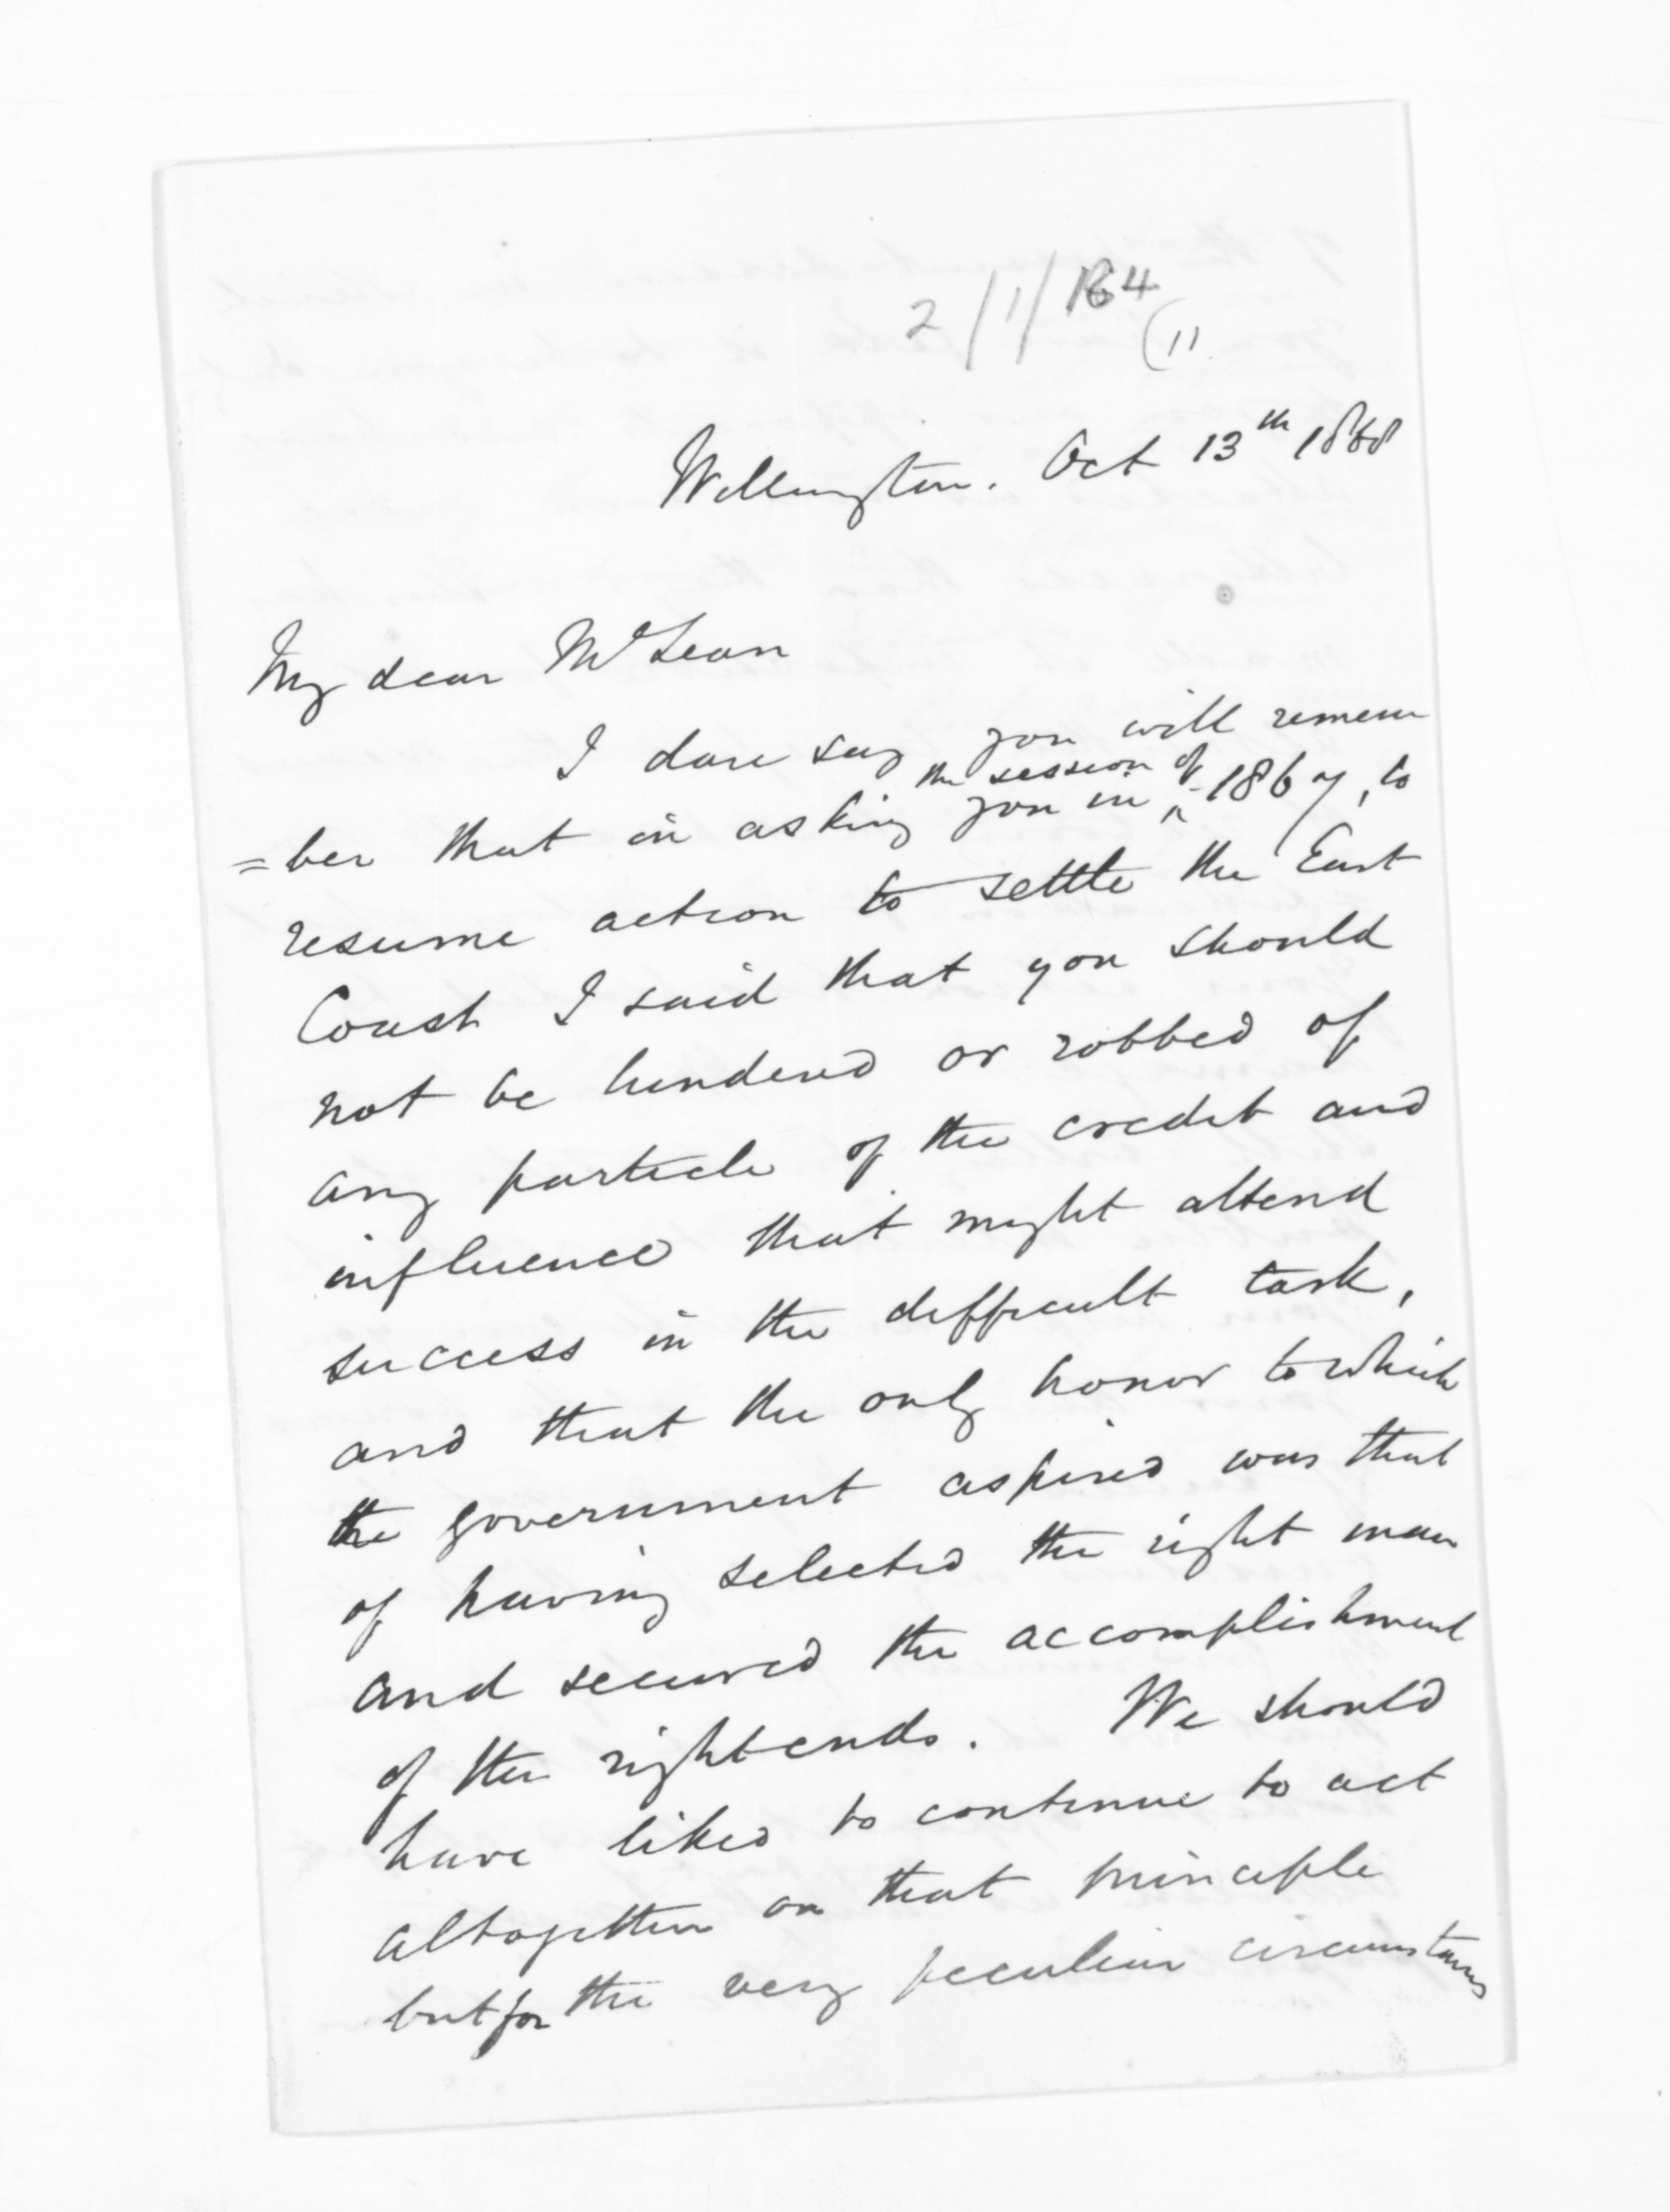 2/1/164
(11
Wellington. Oct 13th 1868
My dear McLean
I dare say you will remem
=ber that in asking you in ^ the session of 1867, to
resume action to settle the East
Coast I said that you should
not be hindered or robbed of
any particle of the credit and
influence that might attend
success in the difficult task,
and that the only honor to which
the government aspired was that
of having selected the right man
and secured the accomplishment
of the right ends. We should
have liked to continue to act
altogether on that principle
but for the very peculiar circumstances